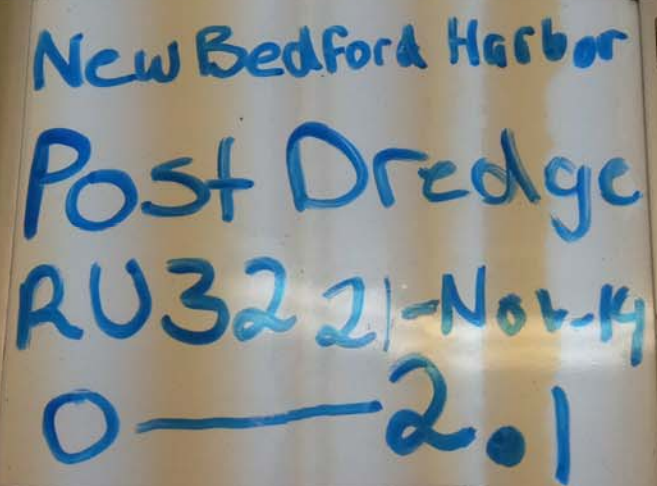 New Bedford Harbor
Post Dredge
RU32 21-Nov-14
0—2.1